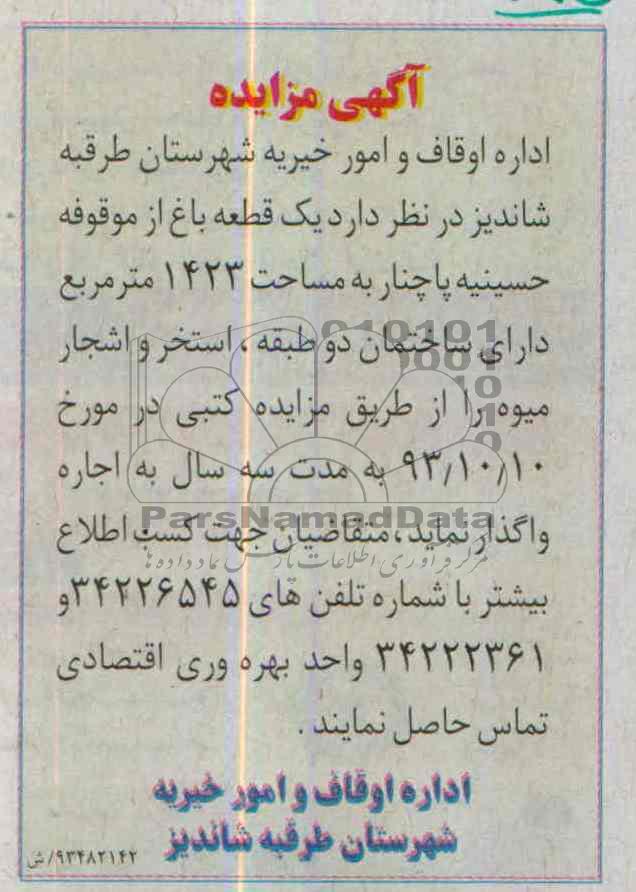 آگهی مزایده
اداره اوقاف و امور خیریه شهرستان طرقبه
شاندیز در نظر دارد یک قطعه باغ از موقوفه
حسینیه پاچنار به مساحت ۱۴۲۳ مترمربع
دارای ساختمان دو طبقه ، استخر و اشجار
میوه را از طریق مزایده کتبی در مورخ
۹۳/۱۰/۱۰ به مدت سه سال به اجاره
واگذار نماید، متقاضیان جهت کسب اطلاع
ParsNamadData
مرکز فرآوری اطلاعات پارس نماد داده ها
بیشتر با شماره تلفن های ۳۴۲۲۶۵۴۵و
۳۴۲۲۲۳۶۱ واحد بهره وری اقتصادی
تماس حاصل نمایند .
اداره اوقاف و امور خیریه
شهرستان طرقبه شاندیز
۹۳۴۸۲۱۴۲/ش